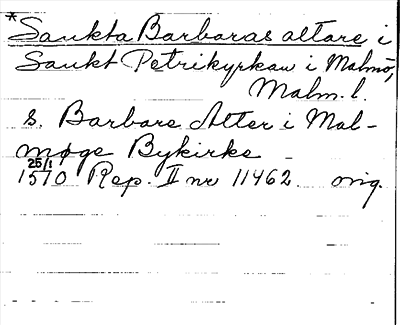 * Sankta Barbaras altare i
Sankt Petrikyrkan i Malmö,
Malm. l.
S. Barbare Alter i Mal-
møge Bykirke
25/1
1570 Rep. II nr 11462. orig.